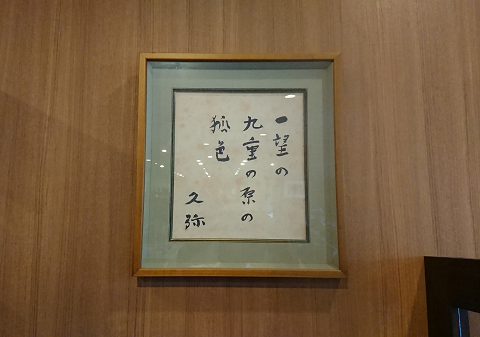 一望の
九重の原の
狐色
久弥